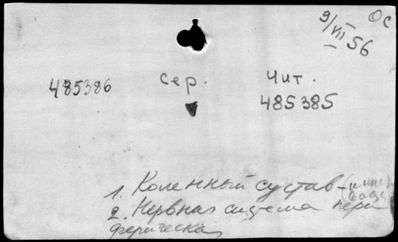 ОС
9/VII 56
485386 Сер. Чит.
485385
1. Коленный сустав -
2. Нервная система пери
ферическая